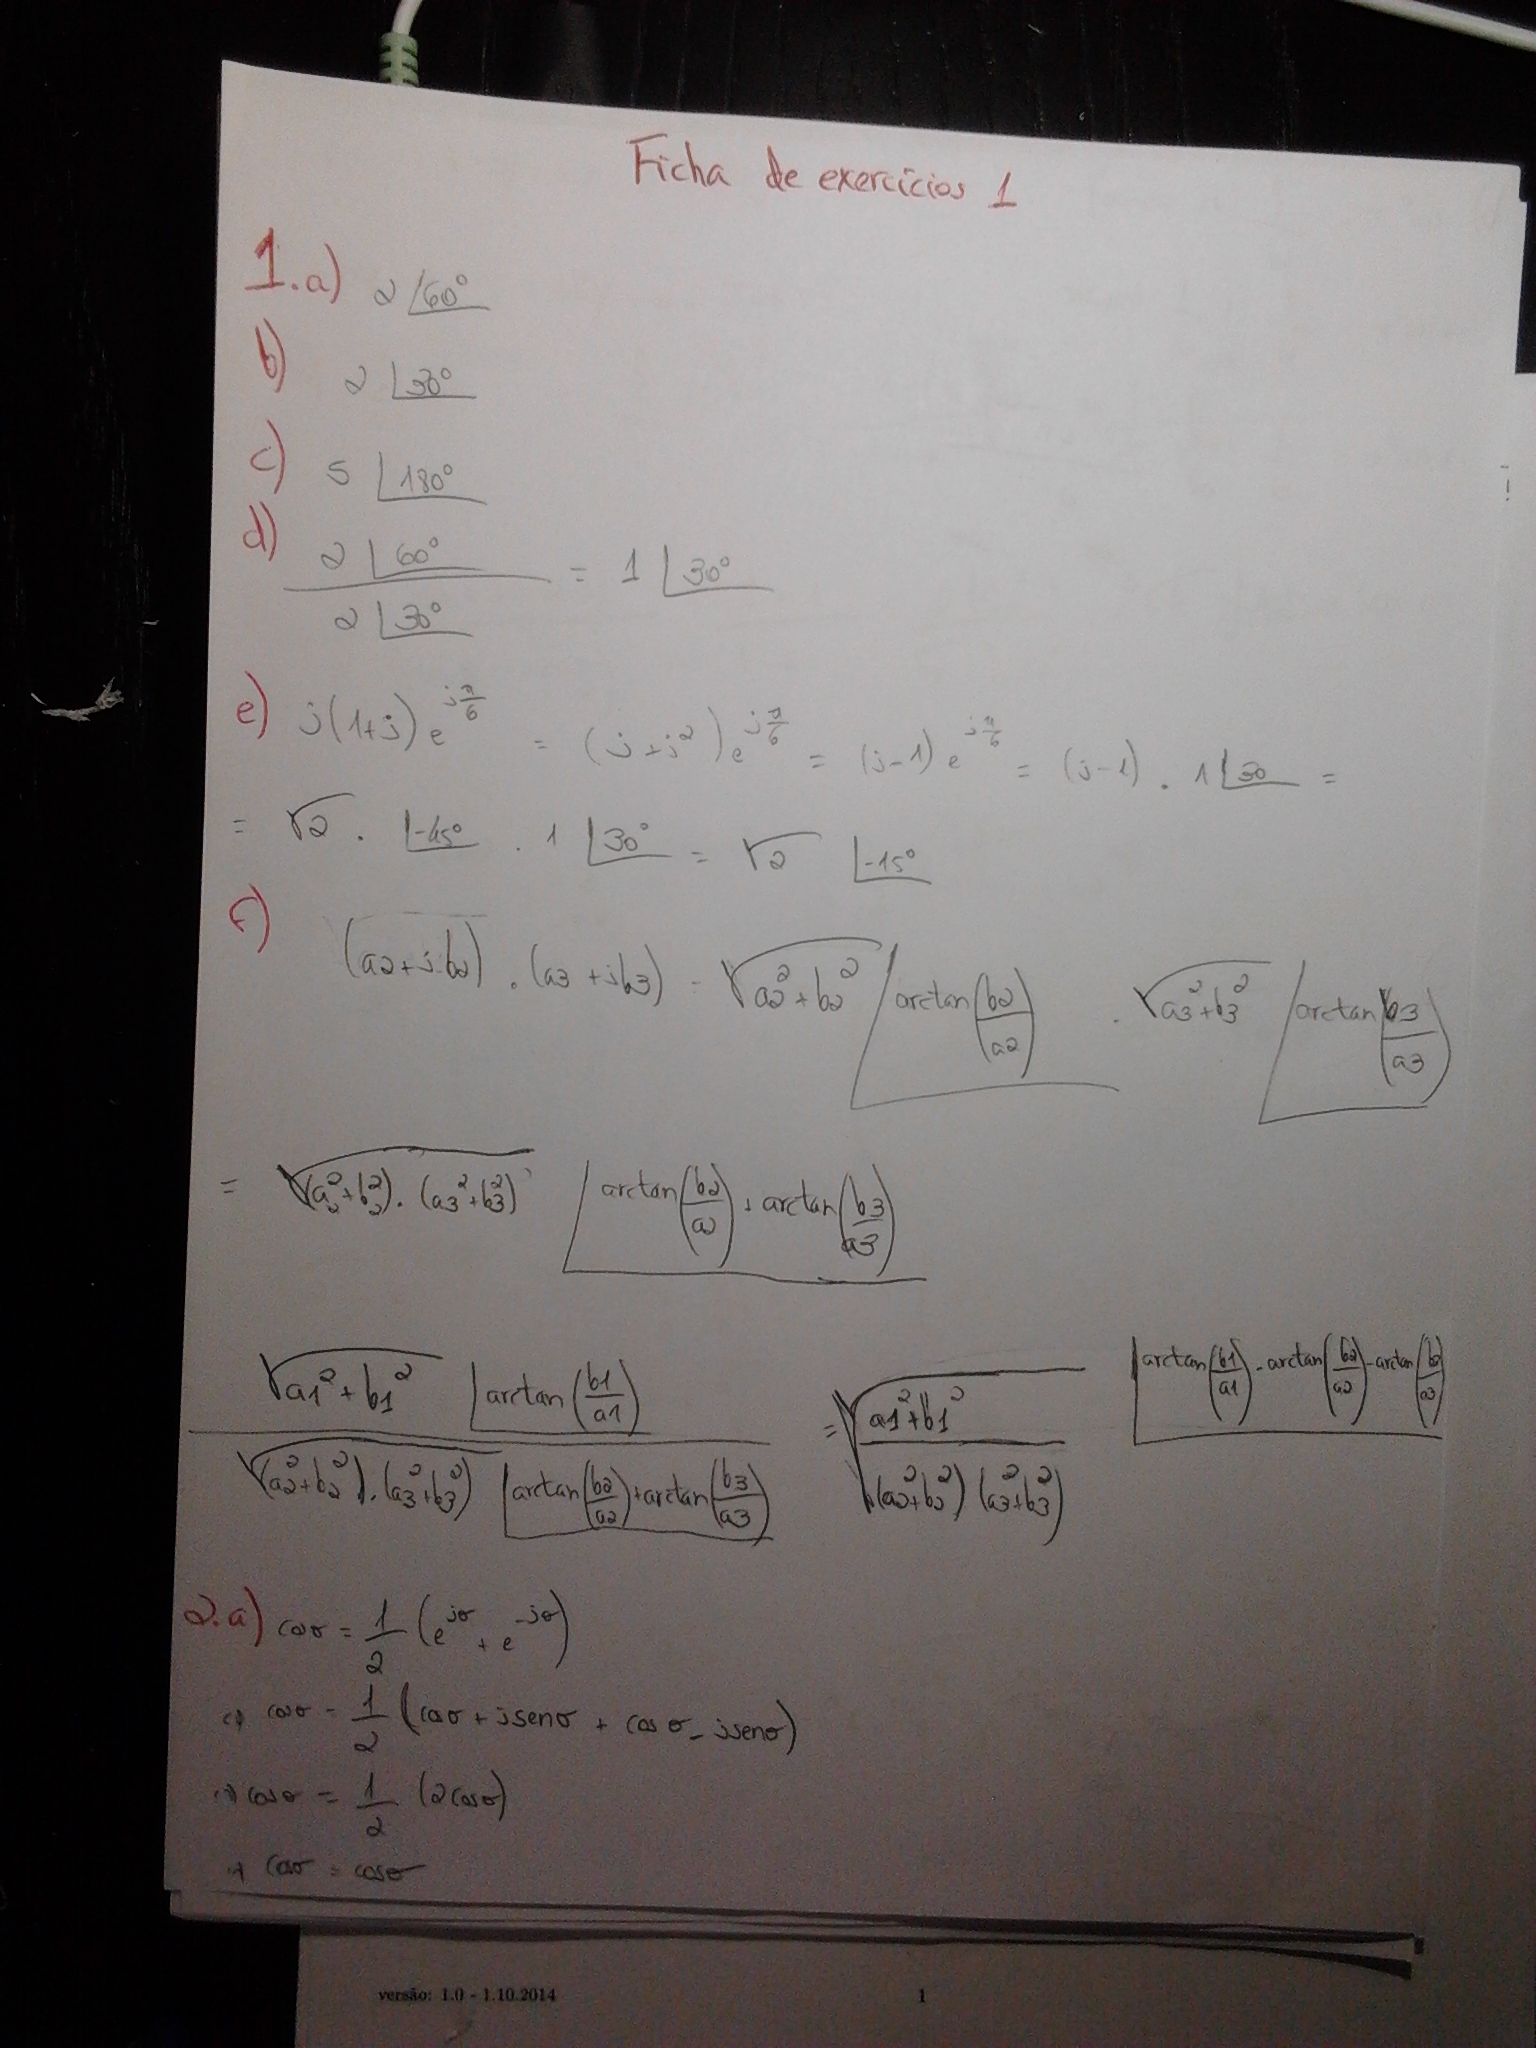 Ficha de exercícios 1
1.a) 2 ∠60°
b) 2 ∠30°
c) 5 ∠180°
d) 2 ∠60° / 2 ∠30° = 1 ∠30°
e) j(1+j) e^(jπ/6) = (j+j²) e^(jπ/6) = (j-1) e^(jπ/6) = (j-1) . 1 ∠30 =
= √2 . ∠-45° . 1 ∠30° = √2 ∠-15°
f) (a2+jb2) . (a3+jb3) = √(a2²+b2²) ∠arctan(b2/a2) . √(a3²+b3²) ∠arctan(b3/a3)
= √((a2²+b2²).(a3²+b3²)) ∠arctan(b2/a) + arctan(b3/a3)
√(a1²+b1²) ∠arctan(b1/a1) / √((a2²+b2²).(a3²+b3²)) ∠arctan(b2/a2)+arctan(b3/a3) = √((a1²+b1²)/((a2²+b2²)(a3²+b3²))) ∠arctan(b1/a1)-arctan(b2/a2)-arctan(b3/a3)
2.a) cosσ = 1/2 (e^(jσ) + e^(-jσ))
⇔ cosσ = 1/2 (cosσ + jsenσ + cosσ - jsenσ)
⇔ cosσ = 1/2 (2cosσ)
⇔ cosσ = cosσ
versão: 1.0 - 1.10.2014 1